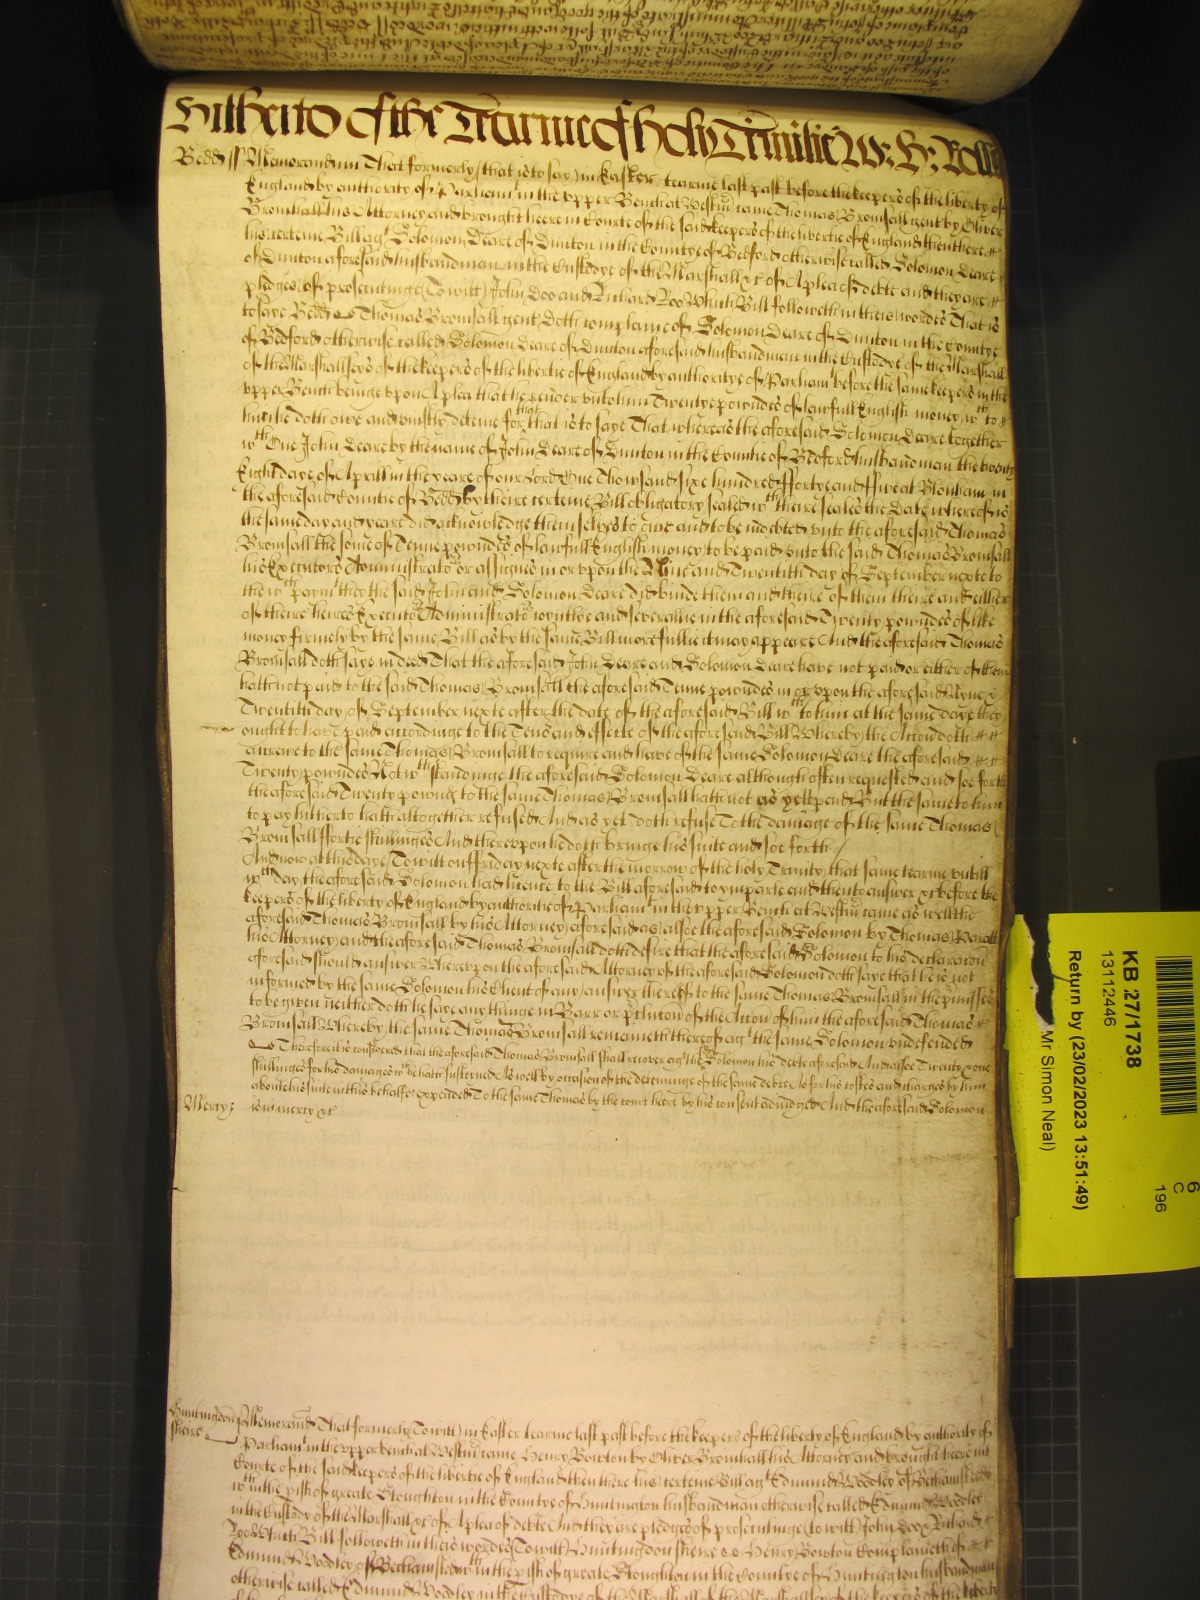 Hitherto of the Tearme of holy Trinitie W: H: Rolle
Bedd ss Memorandum That formerly (that is to say) in Easter tearme last past before the keepers of the liberty of
England by authority of Parliamt in the vpper Bench at Westm came Thomas Bromsall gent by Oliver
Bromhall his Attorney and brought heere in Courte of the said keepers of the libertie of England then there
his certeine Bill agt Solomon Deare of Dunton in the Countye of Bedford otherwise called Solomon Deare
of Dunton aforesaid husbandman in the Custodye of the Marshall &c of A plea of debte and they are
pledges of prosecutinge (To witt) John Doo and Richard Roo Which Bill followeth in theis wordes That is
to saye Bedd ss Thomas Bromsall gent Doth complaine of Solomon Deare of Dunton in the Countye
of Bedford otherwise called Solomon Deare of Dunton aforesaid husbandman in the Custodye of the Marshall
of the Marshallseys of the keepers of the libertie of England by authoritye of Parliamt before the same keepers in the
vpper Bench beinge vpon A plea that he render vnto him Twentye powndes of lawfull English money wch to
him he doth owe and vniustly deteine for that is to saye That whereas the aforesaid Solomon Deare together
wth One John Deare by the name of John Deare of Dunton in the Countie of Bedford husbandman the twenty
Eight daye of Aprill in the yeare of our Lord One Thowsand sixe hundred ffortye and ffive at Blonham in
the aforesaid Countie of Bedd by theire certeine Bill obligatory sealed wth theire seales the Date whereof is
the same day and yeare did acknowledge themselves to owe and to be indebted vnto the aforesaid Thomas
Bromsall the some of Tenne powndes of lawfull English money to be paid vnto the said Thomas Bromsall
his Executors Administrators or assignes in or vpon the Nine and Twentith day of September nexte to
the wch paymt they the said John and Solomon Deare did binde them and theire of them theire and either
of theire heires Executors Administrators ioyntlie and severallie in the aforesaid Twenty powndes of like
money firmely by the same Bill as by the same Bill more fullie it may appeare And the aforesaid Thomas
Bromsall doth saye in deed That the aforesaid John Deare and Solomon Deare have not paid or either of them
hath not paid to the said Thomas Bromsall the aforesaid Tenne powndes in or vpon the aforesaid Nyne &
Twentith day of September nexte after the date of the aforesaid Bill wch to him at the same daye they
ought to have paid accordinge to the Tenor and effecte of the aforesaid Bill Whereby the Accon doth
accrewe to the same Thomas Bromsall to require and have of the same Solomon Deare the aforesaid
Twenty powndes Notwthstandinge the aforesaid Solomon Deare although often requested and soe forth
the aforesaid Twenty pownds to the same Thomas Bromsall hath not as yett paid But the same to him
to pay hitherto hath altogether refused And as yet doth refuse To the damage of the same Thomas
Bromsall ffortie shillinges And therevpon he doth bringe his suite and soe forth /
And now at this daye To witt on ffriday nexte after the morrow of the holy Trinity that same tearme vntill
wch day the aforesaid Solomon had licence to the Bill aforesaid to ymparle and then to answer &c before the
keepers of the liberty of England by authoritie of Parliamt in the vpper Bench at Westm came as well the
aforesaid Thomas Bromsall by his Attorney aforesaid as alsoe the aforesaid Solomon by Thomas
his Attorney and the aforesaid Thomas Bromsall doth desire that the aforesaid Solomon to his declaracon
aforesaid should answer Wherevpon the aforesaid Attorney of the aforesaid Solomon doth saye that he is not
informed by the same Solomon his Client of any answer thereof to the same Thomas Bromsall in the pmisses
to be given neither doth he saye any thinge in Barr or pclusion of the Accon of him the aforesaid Thomas
Bromsall Whereby the same Thomas Bromsall remaineth thereof agt the same Solomon vndefended
Therefore it is considered that the aforesaid Thomas Bromsall shall recover agt the Solomon his debte aforesaid And alsoe Twenty one
shillinges for his damages wch he hath susteined As well by occasion of the deteininge of the same debte As for his costes and charges by him
about his suite in this behalfe expended To the same Thomas by the court heere by his consent adiudged And the aforesaid Solomon
Mercy: is in mercy &c
Huntingdon sheire Memorand That formerly (To witt) in Easter tearme last past before the keepers of the liberty of England by authority of
Parliamt in the vpper bench at Westm came Henry Bowton by Oliver Bromhall his Attorney and brought heere in
Courte of the said keepers of the libertie of England then there his certeine Bill agt Edmund Woodley of
wth in the pish of greate Stoughton in the Countye of Huntington husbandman otherwise called Edmund Woodley
in the Custody of the Marshall &c of A plea of debte And they are pledges of prosecutinge (to witt) John Doo & Richard
Roo Which Bill followeth in theis wordes (To witt) Huntingdon sheire ss Henry Bowton Complaineth of
Edmund Woodley of wth in the pish of greate Stoughton in the Countye of Huntington husbandman
otherwise called Edmund Woodley in the Custodye of the Marshall of the Marshallsey of the keepers of the liberty
KB 27/1738
13112446
Return by (23/02/2023 13:51:49)
Mr Simon Neal)
6
C
196